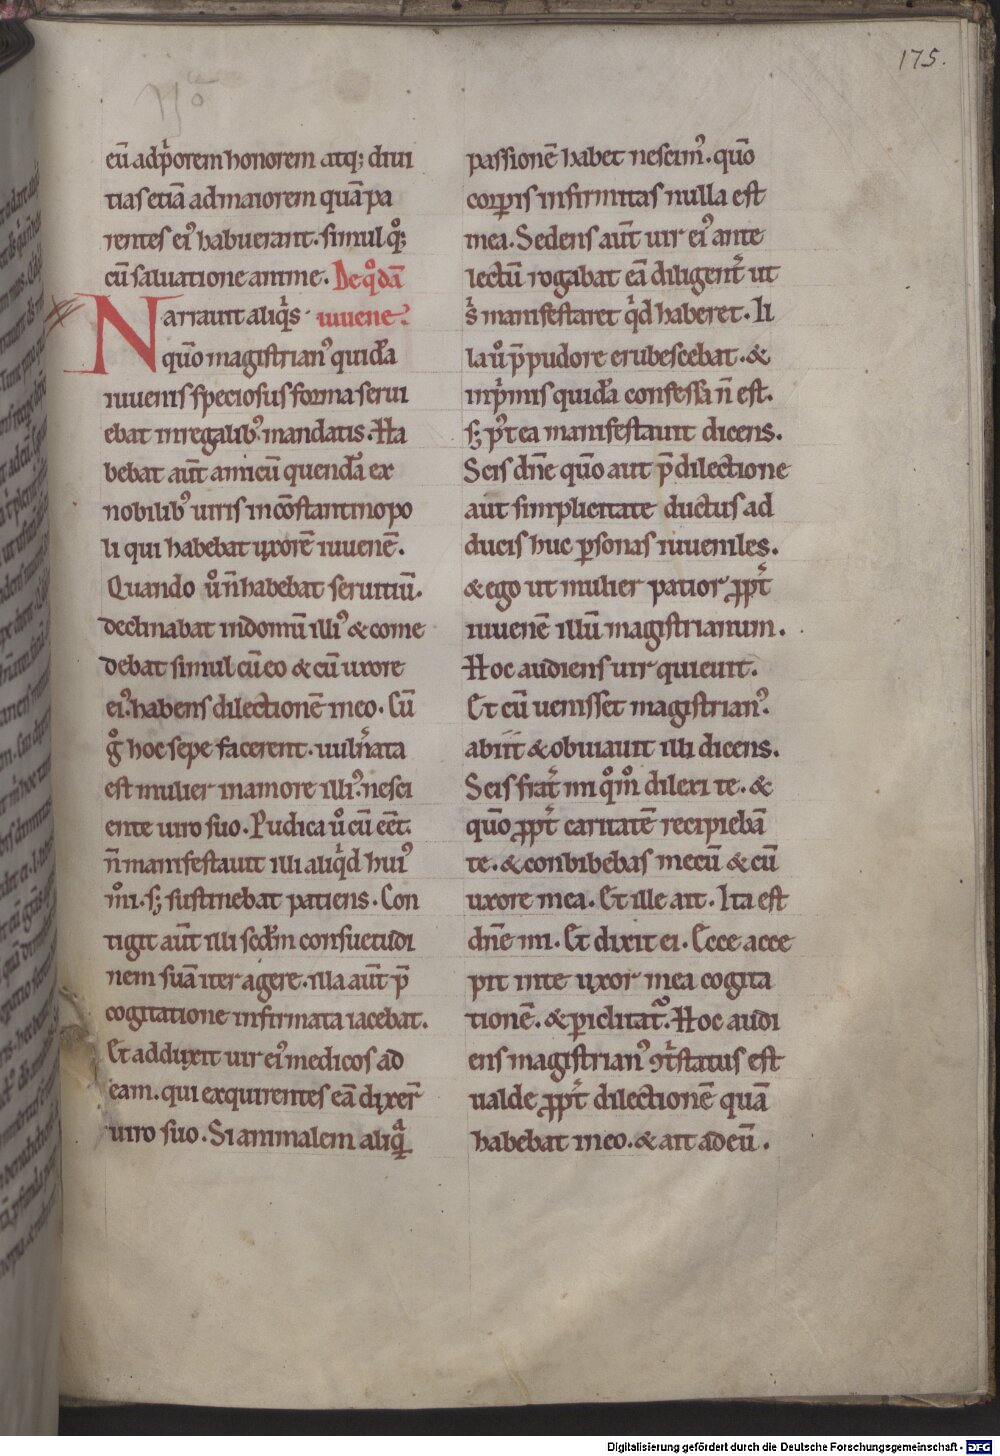 175.
eū adp̄orem honorem atq; diui
tias etiā ad maiorem quā pa
rentes ei᾿ habuerant. simul qͦ;
cū saluatione anime. De qͦdā
Narrauit aliqͥs iuuene.
quō magistrian᾿ quidā
iuuenis speciosus forma serui
ebat in regalib᾿ mandatis. Ha
bebat aut̄ amicū quendā ex
nobilib᾿ uiris in cōstantinopo
li qui habebat uxorē iuuenē.
Quando uͦ n̄ habebat seruitiū.
declinabat in domū illi᾿ & come
debat simul cū eo & cū uxore
ei᾿. habens dilectionē in eo. Cū
gͦ hoc sepe facerent. uulnͣata
est mulier in amore illi᾿. nesci
ente uiro suo. Pudica uͦ cū eēt.
n̄ manifestauit illi aliqͥd hui᾿
mͦi. sꝫ sustinebat patiens. Con
tigit aut̄ illi scd̄m consuetudi
nem suā iter agere. illa aut̄ p̄
cogitatione infirmata iacebat.
Et adduxit uir ei᾿ medicos ad
eam. qui exquirentes eā dixer̄
uiro suo. Si animalem aliqͣ
passionē habet nescim᾿. quō
corꝑis infirmitas nulla est
mea. Sedens aut̄ uir ei᾿ ante
lectū rogabat eā diligent̄ ut
sͥ manifestaret qͥd haberet. Il
la uͦ p̄ pudore erubescebat. &
inpͥmis quidā confessa n̄ est.
sꝫ p᾿t ea manifestauit dicens.
Scis dn̄e quō aut p̄ dilectione
aut simplicitate ductus ad
ducis huc ꝑsonas iuueniles.
& ego ut mulier patior ꝓpt̄
iuuenē illū magistrianum.
Hoc audiens uir quieuit.
Et cū uenisset magistrian᾿.
abiit & obuiauit illi dicens.
Scis frat̄ mi qͦmͦ dilexi te. &
quō ꝓpt̄ caritatē recipiebā
te. & conbibebas mecū & cū
uxore mea. Et ille ait. Ita est
dn̄e mi. Et dixit ei. Ecce acce
pit in te uxor mea cogita
tionē. & ꝑiclitat᾿. Hoc audi
ens magistrian᾿ ꝯt̄status est
ualde ꝓpt̄ dilectionē quā
habebat in eo. & ait ad eū.
Digitalisierung gefördert durch die Deutsche Forschungsgemeinschaft - DFG